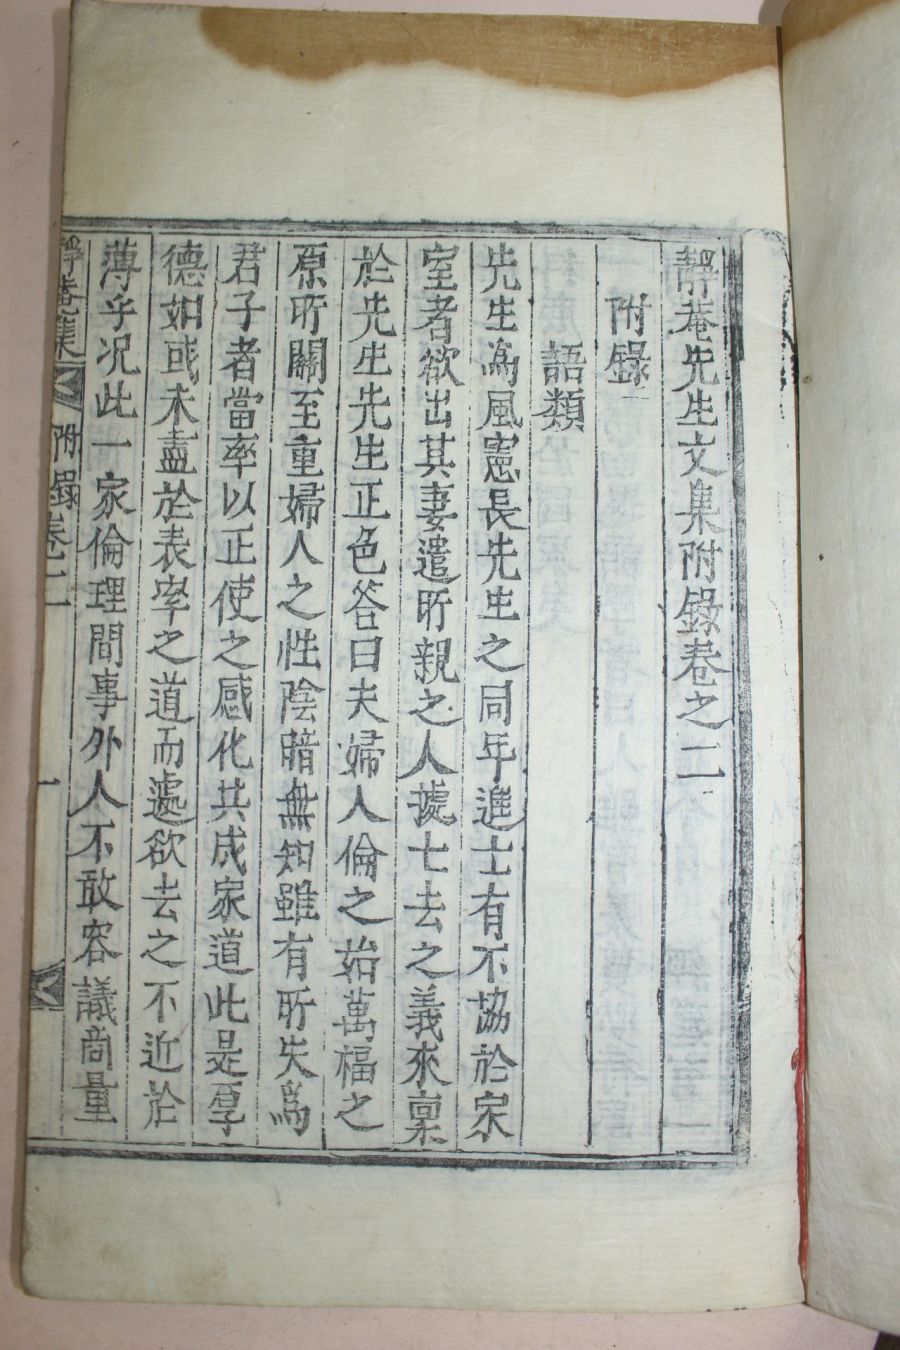 靜菴先生文集附錄卷之二
附錄
語類
先生爲風憲長先生之同年進士有不協於家
室者欲出其妻遣所親之人據七去之義來稟
於先生先生正色答曰夫婦人倫之始萬福之
原所關至重婦人之性陰暗無知雖有所失爲
君子者當率以正使之感化共成家道此是厚
德如或未盡於表率之道而遽欲去之不近於
薄乎况此一家倫理間事外人不敢容議商量
靜菴集 附錄卷二 一